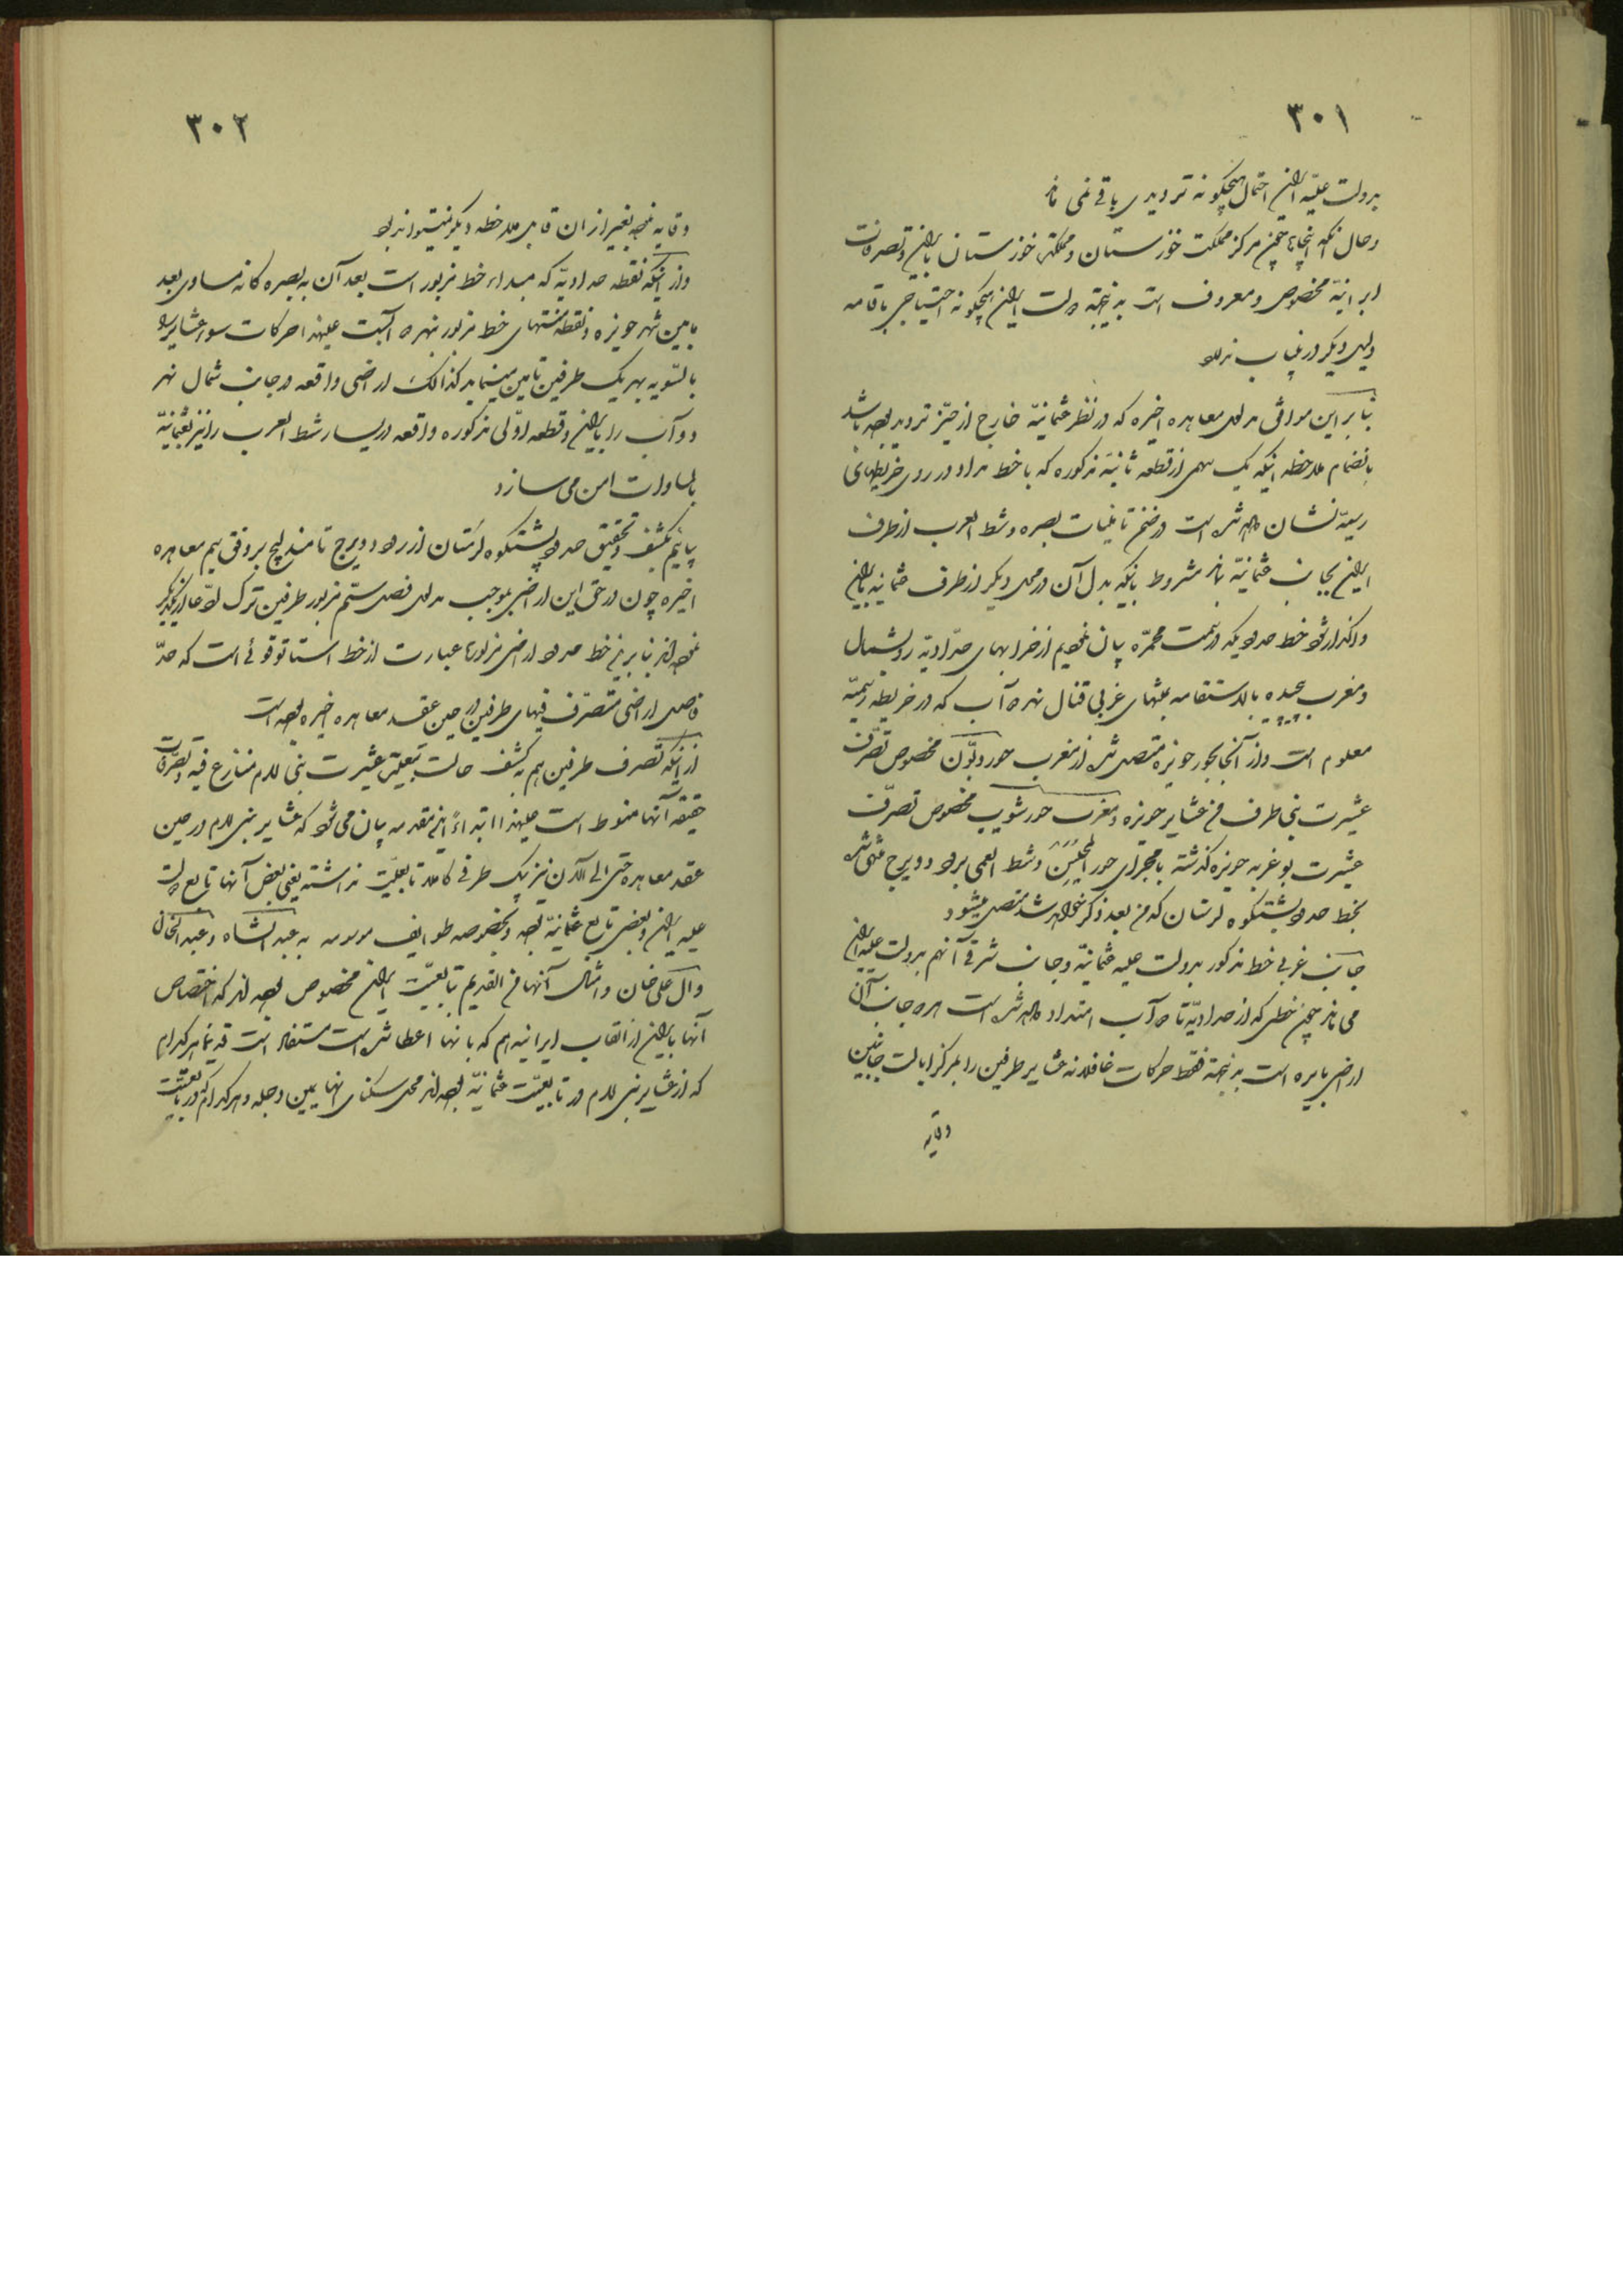 ۳۰۱
بدولت علیّه ایران احتمال هیچگونه تردیدی باقی نمی ماند
و حال آنکه اینجاها چون مرکز مملکت خوزستان و مملکت خوزستان بایران و تصرفات
ایرانیّه مخصوص و معروف است بدینجهة دولت ایران هیچگونه احتیاجی باقامه
دلیل دیگر در اینباب ندارد
بنابراین موافق مدلول معاهده اخیره که در نظر عثمانیّه خارج از حیّز تردید بوده باشد
بانضمام ملاحظه اینکه یک سهمی از قطعه ثانیه مذکوره که با خط مراد در روی خریطهای
رسمیّه نشان داده شده است در ضمن تأمینات بصره و شط العرب از طرف
ایران بجانب عثمانیّه ماند مشروط باینکه بدل آن در محل دیگر از طرف عثمانیه بایران
واگذار شود خط حدودیکه در سمت محمّره بیان نمودیم از خرابهای حدّادیّه رو بشمال
و مغرب پیچیده بالاستقامه بمنتهای غربی قنال نهر دوآب که در خریطه رسمیّه
معلوم است و از آنجا بحور حویزه متصل شده از مغرب حور دبّون مخصوص تصرّف
عشیرت بنی طرف من عشایر حویزه و مغرب حور شویب مخصوص تصرّف
عشیرت بوغربه حویزه گذشته با مجرای حور المحیسن و شط العمی برود دویرج منتهی شده
بخط حدود پشتکوه لرستان که من بعد ذکر خواهد شد متصل میشود
جانب غربی خط مذکور بدولت علیه عثمانیّه و جانب شرقی آنهم بدولت علیّه ایران
می ماند چون خطی که از حدادیّه تا دوآب امتداد داده شده است هر دو جانب آن
اراضی بایره است بدینجهة فقط حرکات غافلانه عشایر طرفین را بمرکز ایالت جانبین
وقایه
۳۰۲
وقایه نموده بغیر از آن قابل ملاحظه دیگر نمیتواند بود
و از اینکه نقطه حدادیّه که مبداء خط مزبور است بعد آن به بصره کانه مساوی بعد
مابین شهر حویزه و نقطه منتهای خط مزبور نهر دوآبست علیهذا حرکات سوء عشایر را
بالسّویه بهر یک طرفین تأمین مینماید کذالک اراضی واقعه در جانب شمال نهر
دوآب را بایران و قطعه اوّلی مذکوره واقعه در یسار شط العرب را نیز بعثمانیّه
بالمساوات امن می سازد
بیائیم بکشف و تحقیق حدود پشتکوه لرستان از رود دویرج تا مندلیج بر وفق سیم معاهده
اخیره چون در حق این اراضی بموجب مدلول فصل سیّم مزبور طرفین ترک ادّعا از یکدیگر
نموده‌اند بنابراین خط حدود اراضی مزبورها عبارت از خط استاتوقوئی است که حدّ
فاصل اراضی متصرّف فیهای طرفین در حین عقد معاهده اخیره بوده است
از اینکه تصرف طرفین هم بکشف حالت تبعیّت عشیرت بنی لام منازع فیه و تصرّفات
حقیقه آنها منوط است علیهذا ابتداءً این مقدمه بیان می شود که عشایر بنی لام در حین
عقد معاهده حتی الی الآن نیز بیک طرفی کاملا تابعیّت نداشته یعنی بعض آنها تابع دولت
علیه ایران و بعضی تابع عثمانیّه بوده و بخصوصه طوایف موسومه به عبد الشاه و عبد الخان
و آل علی خان و امثال آنها من القدیم بتابعیّت ایران مخصوص بوده‌اند که اختصاص
آنها بایران از القاب ایرانیه هم که بآنها اعطا شده است مستفاد است قدیماً هر کدام
که از عشایر بنی لام در تابعیّت عثمانیّه بوده‌اند محل سکنای آنها یمین دجله و هر کدام که در تابعیّت